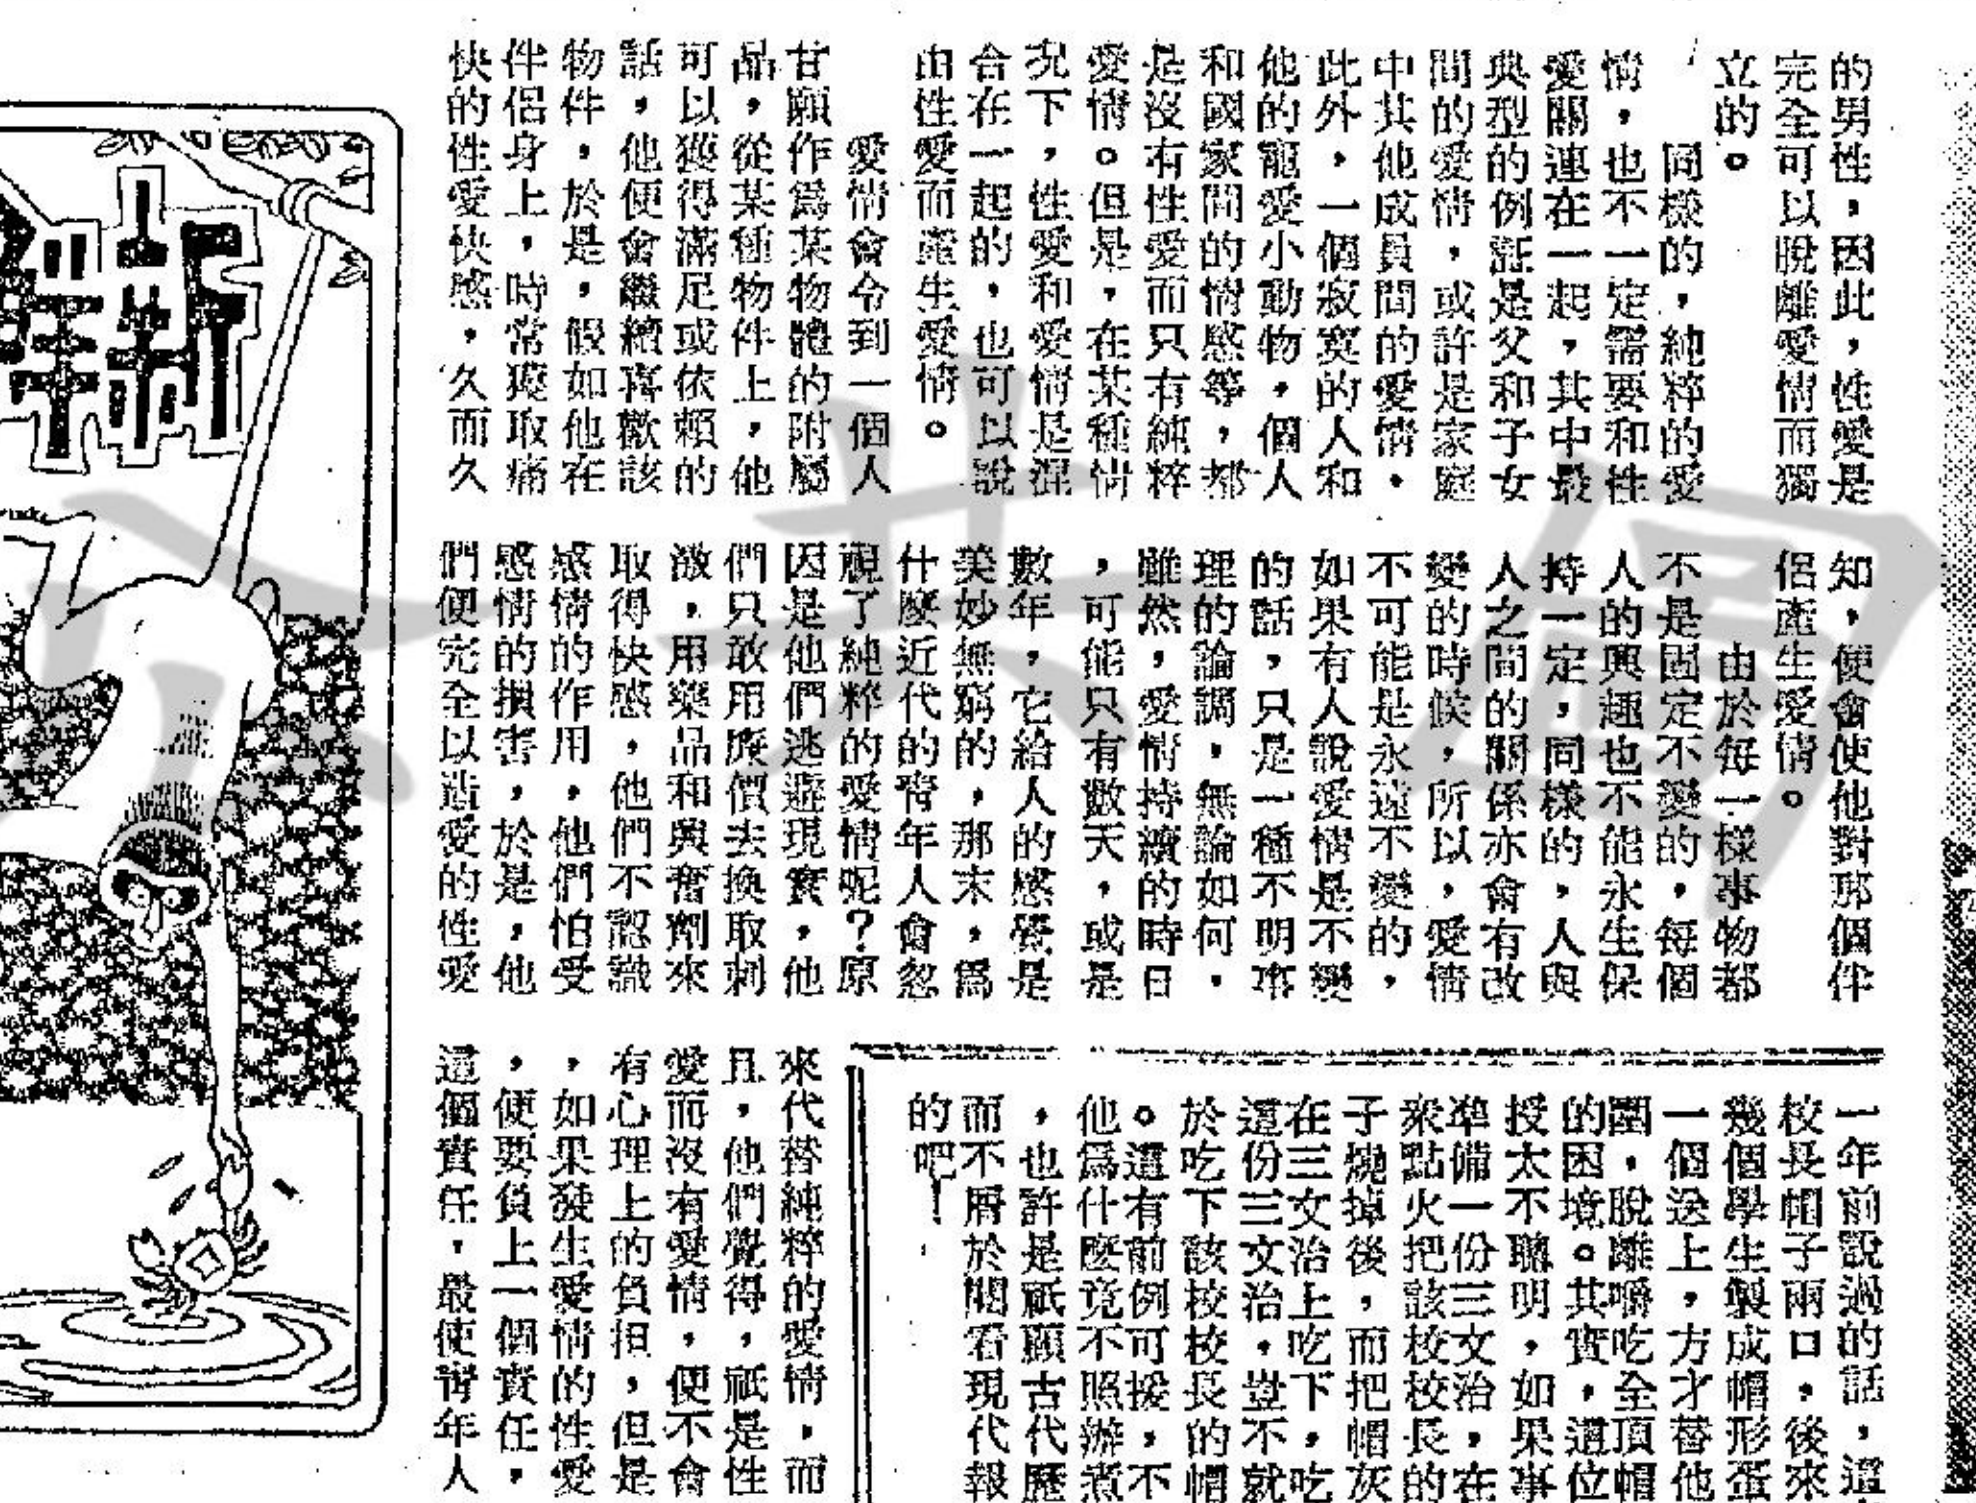 的男性，因此，性愛是
完全可以脫離愛情而獨
立的。
同樣的，純粹的愛
情，也不一定需要和性
愛關連在一起，其中最
典型的例証是父和子女
間的愛情，或許是家庭
中其他成員間的愛情。
此外，一個寂寞的人和
他的寵愛小動物，個人
和國家間的情感等，都
是沒有性愛而只有純粹
愛情。但是，在某種情
況下，性愛和愛情是混
合在一起的，也可以說
由性愛而產生愛情。
愛情會令到一個人
甘願作為某物體的附屬
品，從某種物件上，他
可以獲得滿足或依賴的
話，他便會繼續喜歡該
物件，於是，假如他在
伴侶身上，時常獲取痛
快的性愛快感，久而久
知，便會使他對那個伴
侶產生愛情。
由於每一樣事物都
不是固定不變的，每個
人的興趣也不能永生保
持一定，同樣的，人與
人之間的關係亦會有改
變的時候，所以，愛情
不可能是永遠不變的，
如果有人說愛情是不變
的話，只是一種不明事
理的論調，無論如何，
雖然，愛情持續的時日
，可能只有數天，或是
數年，它給人的感覺是
美妙無窮的，那末，為
什麼近代的青年人會忽
視了純粹的愛情呢？原
因是他們逃避現實，他
們只敢用廉價去換取刺
激，用藥品和興奮劑來
取得快感，他們不認識
感情的作用，他們怕受
感情的損害，於是，他
們便完全以造愛的性愛
來代替純粹的愛情，而
且，他們覺得，祇是性
愛而沒有愛情，便不會
有心理上的負担，但是
，如果發生愛情的性愛
，便要負上一個責任，
這個責任，最使青年人
一年前說過的話，這
校長帽子兩口，後來
幾個學生製成帽形蛋
一個送上，方才替他
圍，脫離嚼吃全頂帽
的困境。其實，這位
授太不聰明，如果事
準備一份三文治，在
衆點火把該校校長的
子燒掉後，而把帽灰
在三文治上吃下，吃
這份三文治，豈不就
於吃下該校校長的帽
。還有前例可援，不
他為什麼竟不照辦煮
，也許是祇顧古代歷
而不屑於閱看現代報
的吧！
公共圖